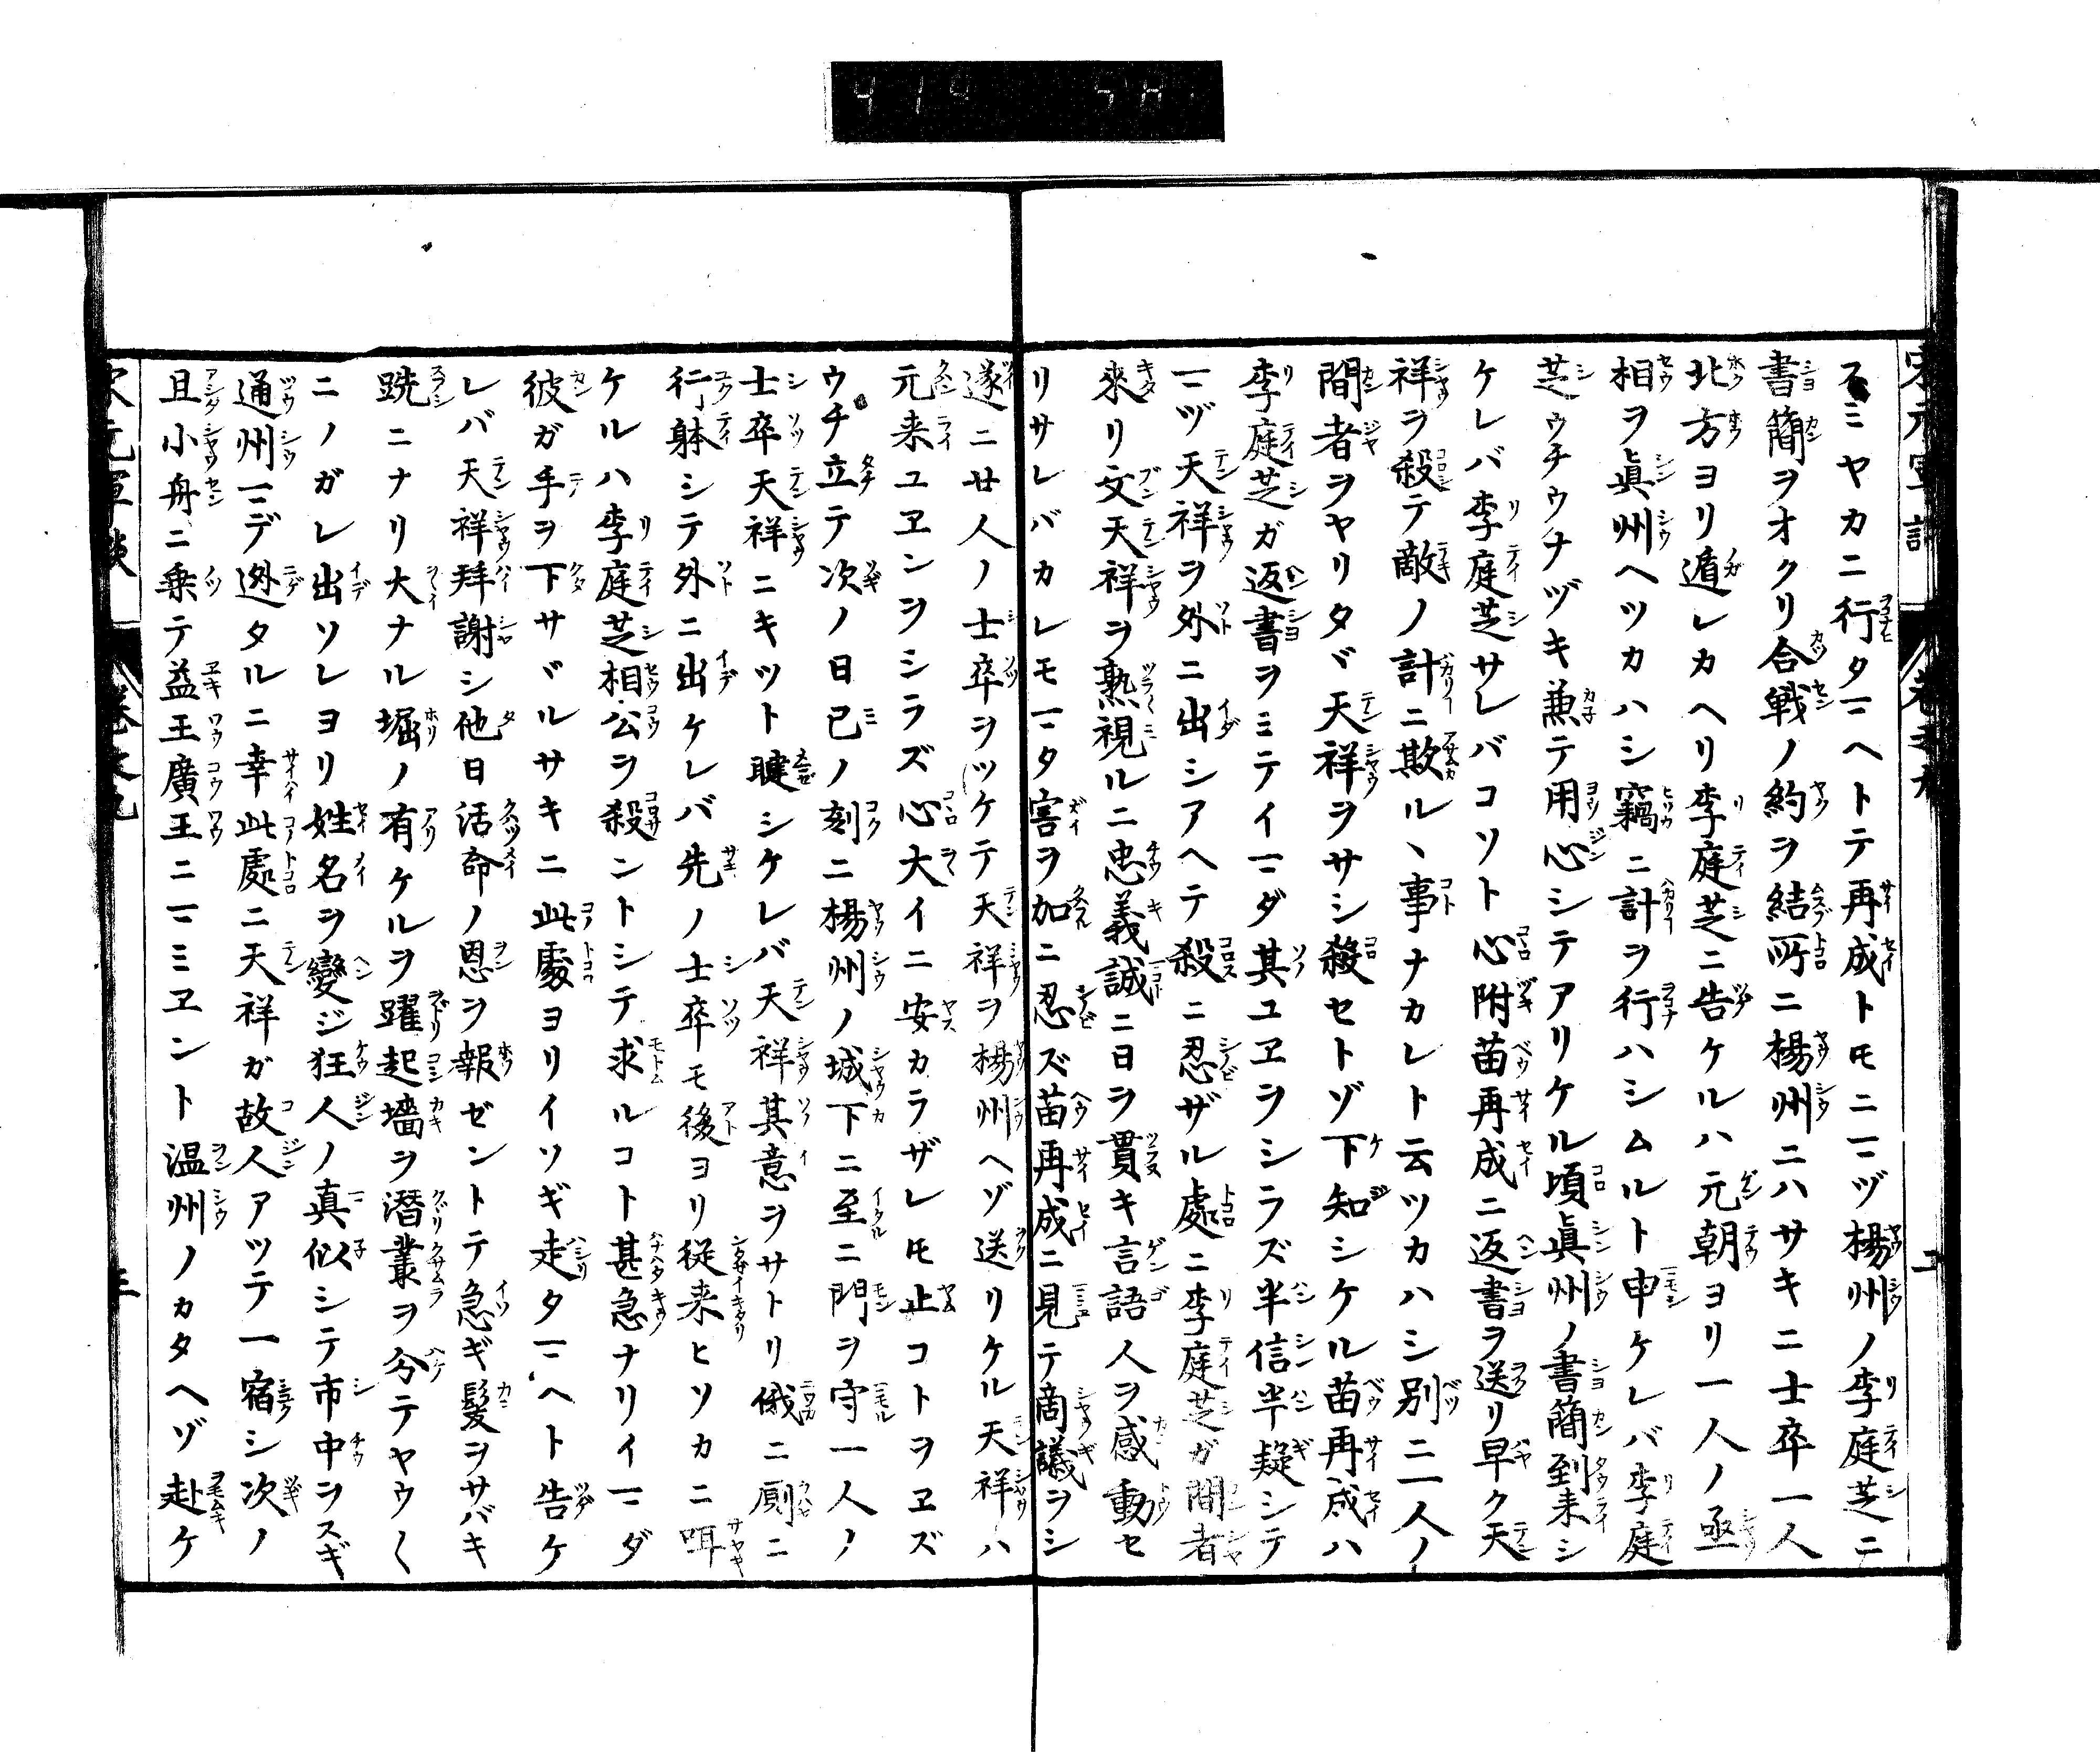 スミヤカニ行タマヘトテ再成トモニマヅ楊州ノ李庭芝ニ
書簡ヲオクリ合戦ノ約ヲ結所ニ楊州ニハサキニ士卒一人
北方ヨリ遁レカヘリ李庭芝ニ告ケルハ元朝ヨリ一人ノ丞
相ヲ眞州ヘツカハシ竊ニ計ヲ行ハシムルト申ケレバ李庭
芝ウチウナヅキ兼テ用心シテアリケル頃眞州ノ書簡到来シ
ケレバ李庭芝サレバコソト心附苗再成ニ返書ヲ送リ早ク天
祥ヲ殺テ敵ノ計ニ欺ルヽ事ナカレト云ツカハシ別ニ一人ノ
間者ヲヤリタヾ天祥ヲサシ殺セトゾ下知シケル苗再成ハ
李庭芝ガ返書ヲミテイマダ其ユヱヲシラズ半信半疑シテ
マヅ天祥ヲ外ニ出シアヘテ殺ニ忍ザル處ニ李庭芝ガ間者
來リ文天祥ヲ熟視ルニ忠義誠ニ日ヲ貫キ言語人ヲ感動セ
リサレバカレモマタ害ヲ加ニ忍ズ苗再成ニ見テ商議ヲシ
遂ニ廿人ノ士卒ヲツケテ天祥ヲ楊州ヘゾ送リケル天祥ハ
元来ユヱンヲシラズ心大イニ安カラザレモ止コトヲヱズ
ウチ立テ次ノ日巳ノ刻ニ楊州ノ城下ニ至ニ門ヲ守一人ノ
士卒天祥ニキツト睫シケレバ天祥其意ヲサトリ俄ニ厠ニ
行躰シテ外ニ出ケレバ先ノ士卒モ後ヨリ従来ヒソカニ咡
ケルハ李庭芝相公ヲ殺ントシテ求ルコト甚急ナリイマダ
彼ガ手ヲ下サヾルサキニ此處ヨリイソギ走タマヘト告ケ
レバ天祥拜謝シ他日活命ノ恩ヲ報ゼントテ急ギ髪ヲサバキ
跣ニナリ大ナル堀ノ有ケルヲ躍起墻ヲ潛叢ヲ分テヤウ〱
ニノガレ出ソレヨリ姓名ヲ變ジ狂人ノ真似シテ市中ヲスギ
通州マデ迯タルニ幸此處ニ天祥ガ故人アツテ一宿シ次ノ
且小舟ニ乗テ益王廣王ニマミヱント温州ノカタヘゾ赴ケ